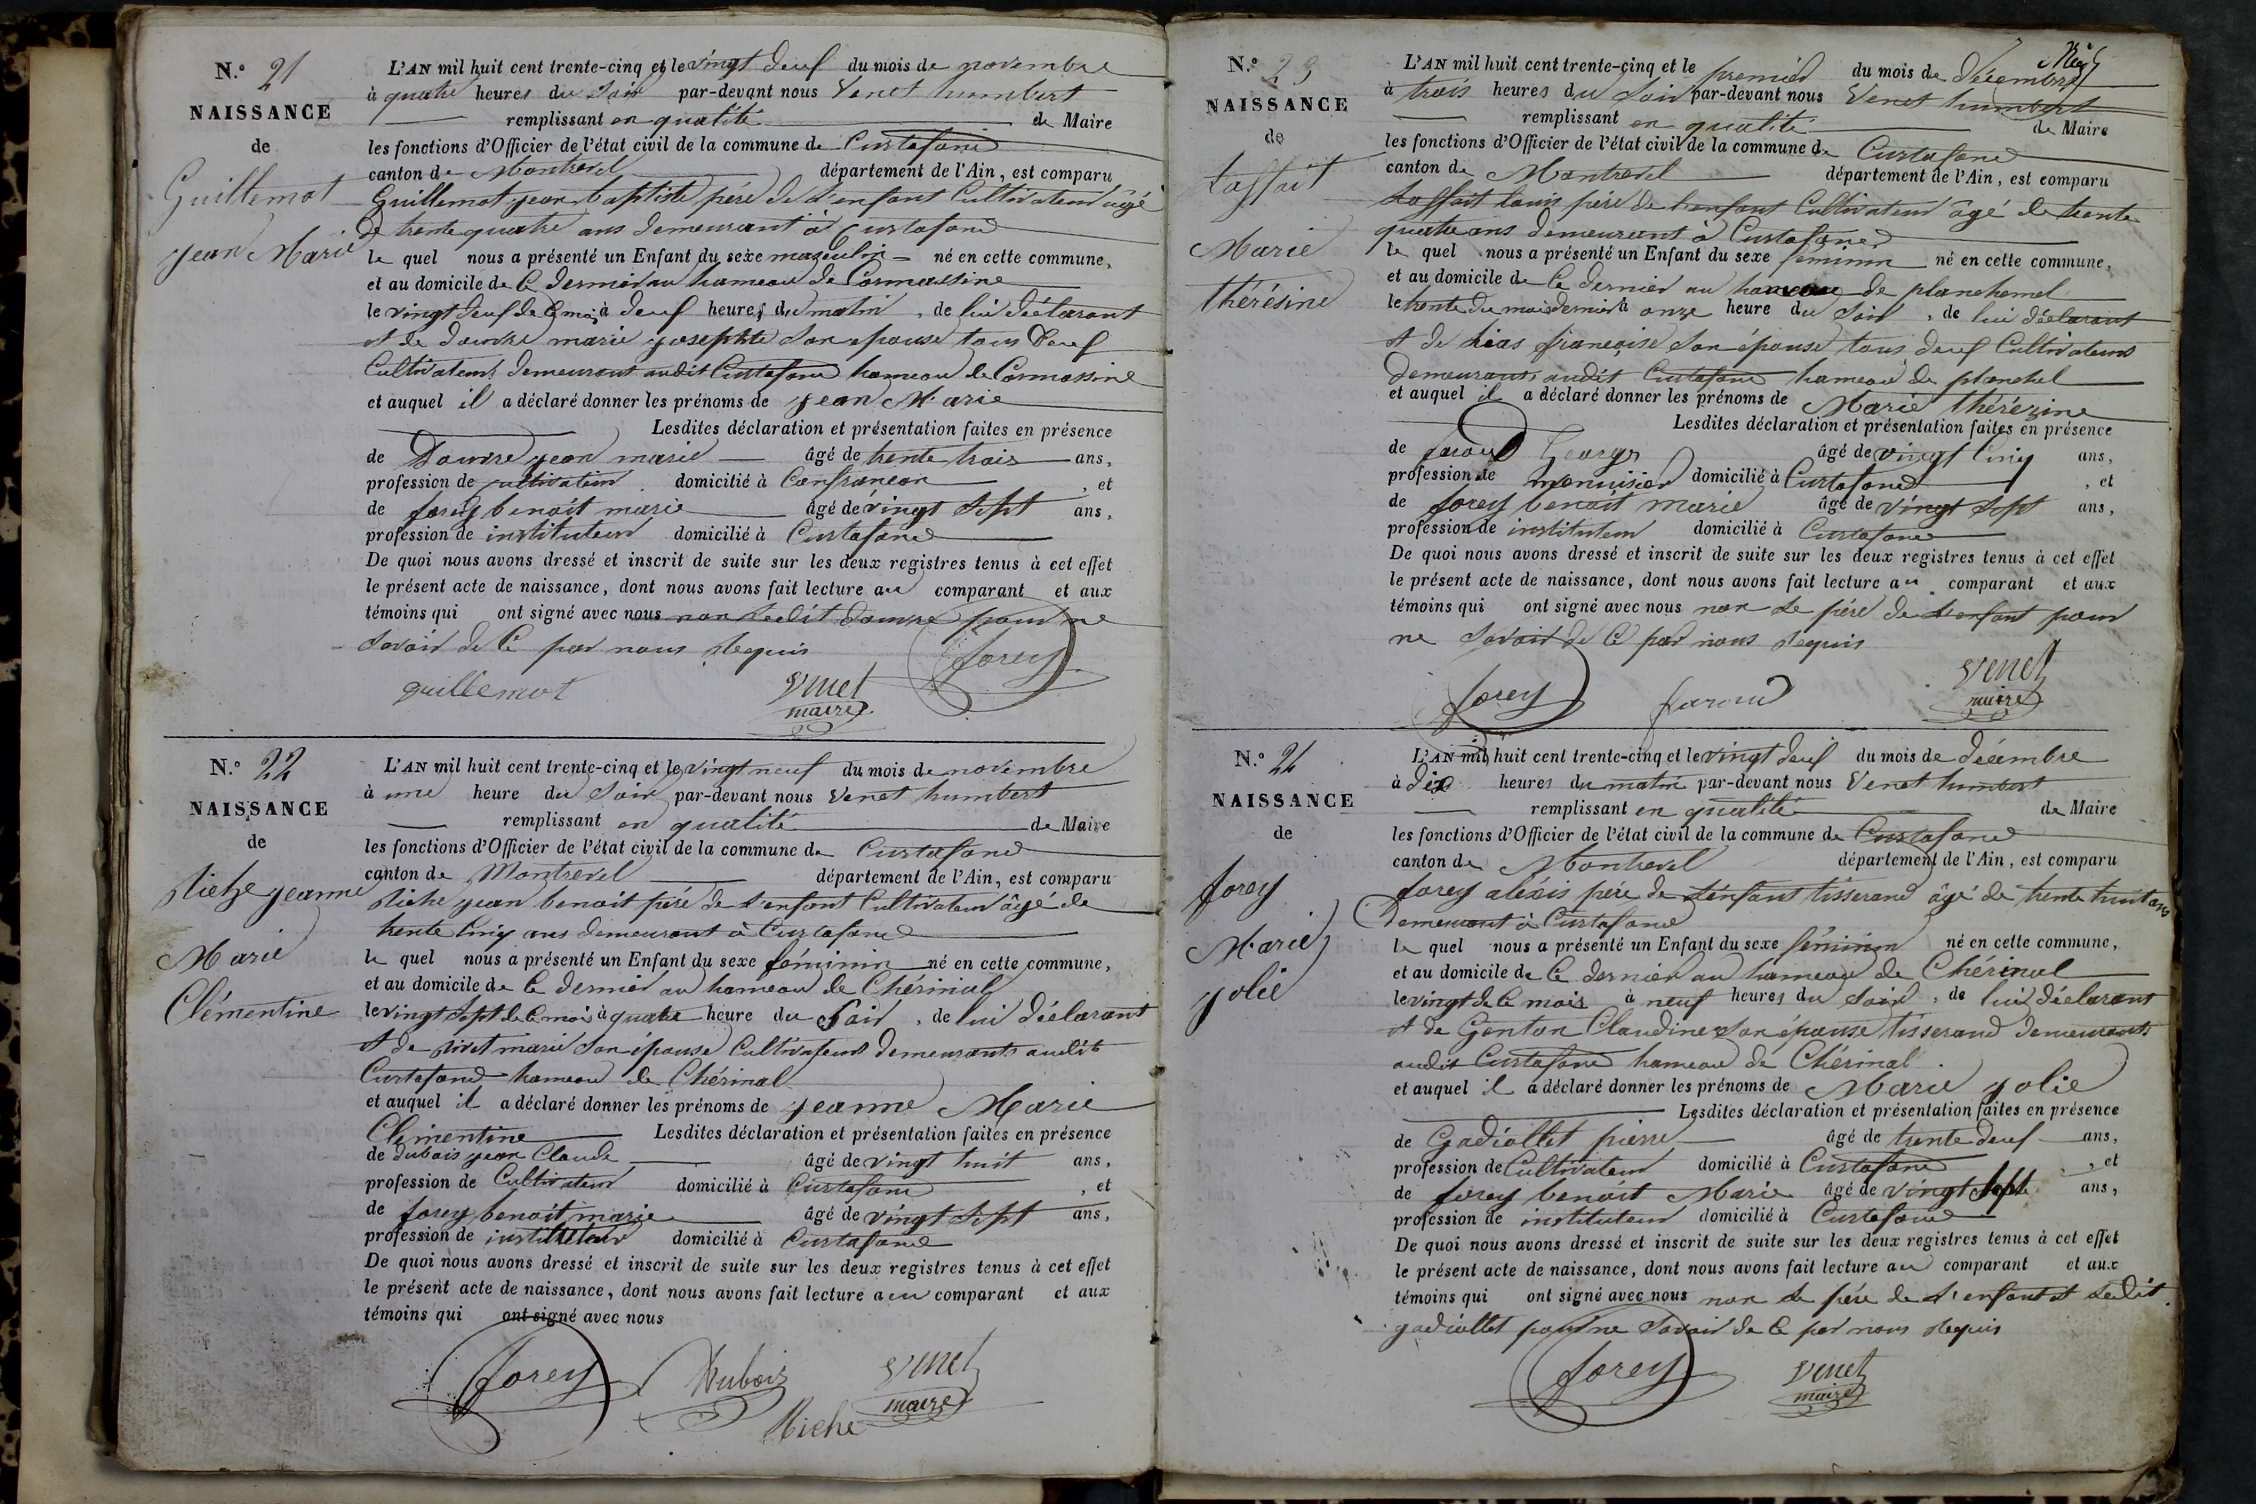 N.º 21
NAISSANCE
de
Guillemot
jean Marie
L'AN mil huit cent trente-cinq et le vingt deux du mois de novembre
à quatre heures du Soir par-devant nous Venet humbert
remplissant en qualité de Maire
les fonctions d'Officier de l'état civil de la commune de Curtafond
canton de Montrevel département de l'Ain, est comparu
Guillemot jean baptiste père de l'enfant Cultivateur âgé
de trente quatre ans demeurant à Curtafond
le quel nous a présenté un Enfant du sexe masculin né en cette commune,
et au domicile de Ce dernier au hameau de Cormassine
le vingt deux de Ce mois à deux heures du matin, de lui déclarant
et de Douvre marie josephte Son épouse tous deux
Cultivateurs demeurant audit Curtafond hameau de Cormassine
et auquel il a déclaré donner les prénoms de jean Marie
Lesdites déclaration et présentation faites en présence
de Douvre jean marie âgé de trente trois ans,
profession de cultivateur domicilié à Confrançon, et
de forey benoit marie âgé de vingt Sept ans,
profession de instituteur domicilié à Curtafond
De quoi nous avons dressé et inscrit de suite sur les deux registres tenus à cet effet
le présent acte de naissance, dont nous avons fait lecture au comparant et aux
témoins qui ont signé avec nous non Ledit Douvre pour ne
Savoir de Ce par nous Requis
guillemot Venet maire forey
N.º 22
NAISSANCE
de
Riche jeanne
Marie
Clémentine
L'AN mil huit cent trente-cinq et le vingt neuf du mois de novembre
à une heure du Soir par-devant nous Venet humbert
remplissant en qualité de Maire
les fonctions d'Officier de l'état civil de la commune de Curtafond
canton de Montrevel département de l'Ain, est comparu
Riche jean benoit père de l'enfant Cultivateur âgé de
trente Cinq ans demeurant à Curtafond
le quel nous a présenté un Enfant du sexe féminin né en cette commune,
et au domicile de Ce dernier au hameau de Chérinal
le vingt Sept de Ce mois à quatre heure du Soir, de lui déclarant
et de marie Son épouse Cultivateurs demeurants audit
Curtafond hameau de Chérinal
et auquel il a déclaré donner les prénoms de jeanne Marie
Clémentine Lesdites déclaration et présentation faites en présence
de dubois jean Claude âgé de vingt huit ans,
profession de Cultivateur domicilié à Curtafond, et
de forey benoit marie âgé de vingt Sept ans,
profession de instituteur domicilié à Curtafond
De quoi nous avons dressé et inscrit de suite sur les deux registres tenus à cet effet
le présent acte de naissance, dont nous avons fait lecture au comparant et aux
témoins qui ont signé avec nous
forey Dubois Venet maire
Riche
N.º 23
NAISSANCE
de
Laffait
Marie
thérésine
L'AN mil huit cent trente-cinq et le premier du mois de décembre
à trois heures du Soir par-devant nous Venet humbert
remplissant en qualité de Maire
les fonctions d'Officier de l'état civil de la commune de Curtafond
canton de Montrevel département de l'Ain, est comparu
Laffait louis père de l'enfant Cultivateur âgé de trente
quatre ans demeurant à Curtafond
le quel nous a présenté un Enfant du sexe féminin né en cette commune,
et au domicile de Ce dernier au hameau de planchemel
le trente du mois dernier à onze heure du Soir, de lui déclarant
et de françoise Son épouse tous deux Cultivateurs
demeurants audit Curtafond hameau de planchel
et auquel il a déclaré donner les prénoms de Marie thérézine
Lesdites déclaration et présentation faites en présence
de faroud Georges âgé de vingt Cinq ans,
profession de menuisier domicilié à Curtafond, et
de forey benoit marie âgé de vingt Sept ans,
profession de instituteur domicilié à Curtafond
De quoi nous avons dressé et inscrit de suite sur les deux registres tenus à cet effet
le présent acte de naissance, dont nous avons fait lecture au comparant et aux
témoins qui ont signé avec nous non Le père de L'enfant pour
ne Savoir de Ce par nous Requis
forey faroud Venet maire
N.º 24
NAISSANCE
de
forey
Marie
jolie
L'AN mil huit cent trente-cinq et le vingt deux du mois de décembre
à dix heures du matin par-devant nous Venet humbert
remplissant en qualité de Maire
les fonctions d'Officier de l'état civil de la commune de Curtafond
canton de Montrevel département de l'Ain, est comparu
forey aléxis père de L'enfant tisserand âgé de trente huit ans
Demeurant à Curtafond
le quel nous a présenté un Enfant du sexe féminin né en cette commune,
et au domicile de Ce dernier au hameau de Chérinal
le vingt de Ce mois à neuf heures du Soir, de lui déclarant
et de Gonton Claudine Son épouse tisserand demeurants
audit Curtafond hameau de Chérinal
et auquel il a déclaré donner les prénoms de Marie jolie
Lesdites déclaration et présentation faites en présence
de Gadiollet pierre âgé de trente deux ans,
profession de Cultivateur domicilié à Curtafond, et
de forey benoit Marie âgé de vingt Sept ans,
profession de instituteur domicilié à Curtafond
De quoi nous avons dressé et inscrit de suite sur les deux registres tenus à cet effet
le présent acte de naissance, dont nous avons fait lecture au comparant et aux
témoins qui ont signé avec nous non Le père de L'enfant et Ledit
gadiollet pour ne Savoir de Ce par nous Requis
forey Venet maire